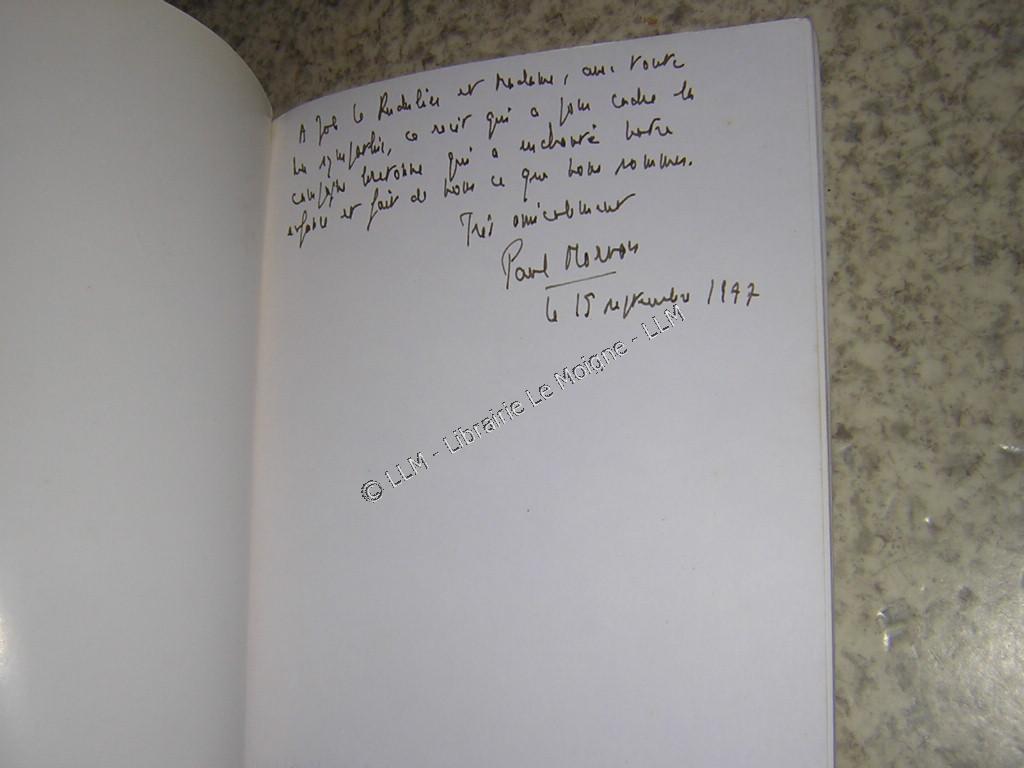 A Job Le et Madame, avec toute
ma sympathie, ce récit qui a pour cadre la
campagne bretonne qui a enchanté notre
enfance et fait de nous ce que nous sommes.
Très amicalement
Paul Morvan
le 15 septembre 1997
© LLM - Librairie Le Moigne - LLM